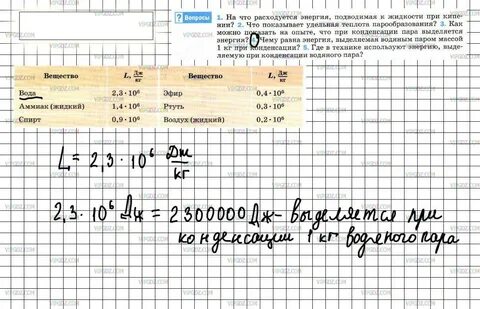 ? Вопросы 1. На что расходуется энергия, подводимая к жидкости при кипе-
нии? 2. Что показывает удельная теплота парообразования? 3. Как
можно показать на опыте, что при конденсации пара выделяется
энергия? Чему равна энергия, выделяемая водяным паром массой
1 кг при конденсации? 5. Где в технике используют энергию, выде-
ляемую при конденсации водяного пара?
Вещество L, Дж/кг Вещество L, Дж/кг
Вода 2,3 · 10⁶ Эфир 0,4 · 10⁶
Аммиак (жидкий) 1,4 · 10⁶ Ртуть 0,3 · 10⁶
Спирт 0,9 · 10⁶ Воздух (жидкий) 0,2 · 10⁶
L = 2,3 · 10⁶ Дж/кг
2,3 · 10⁶ Дж = 2300000 Дж - выделяется при
конденсации 1 кг водяного пара